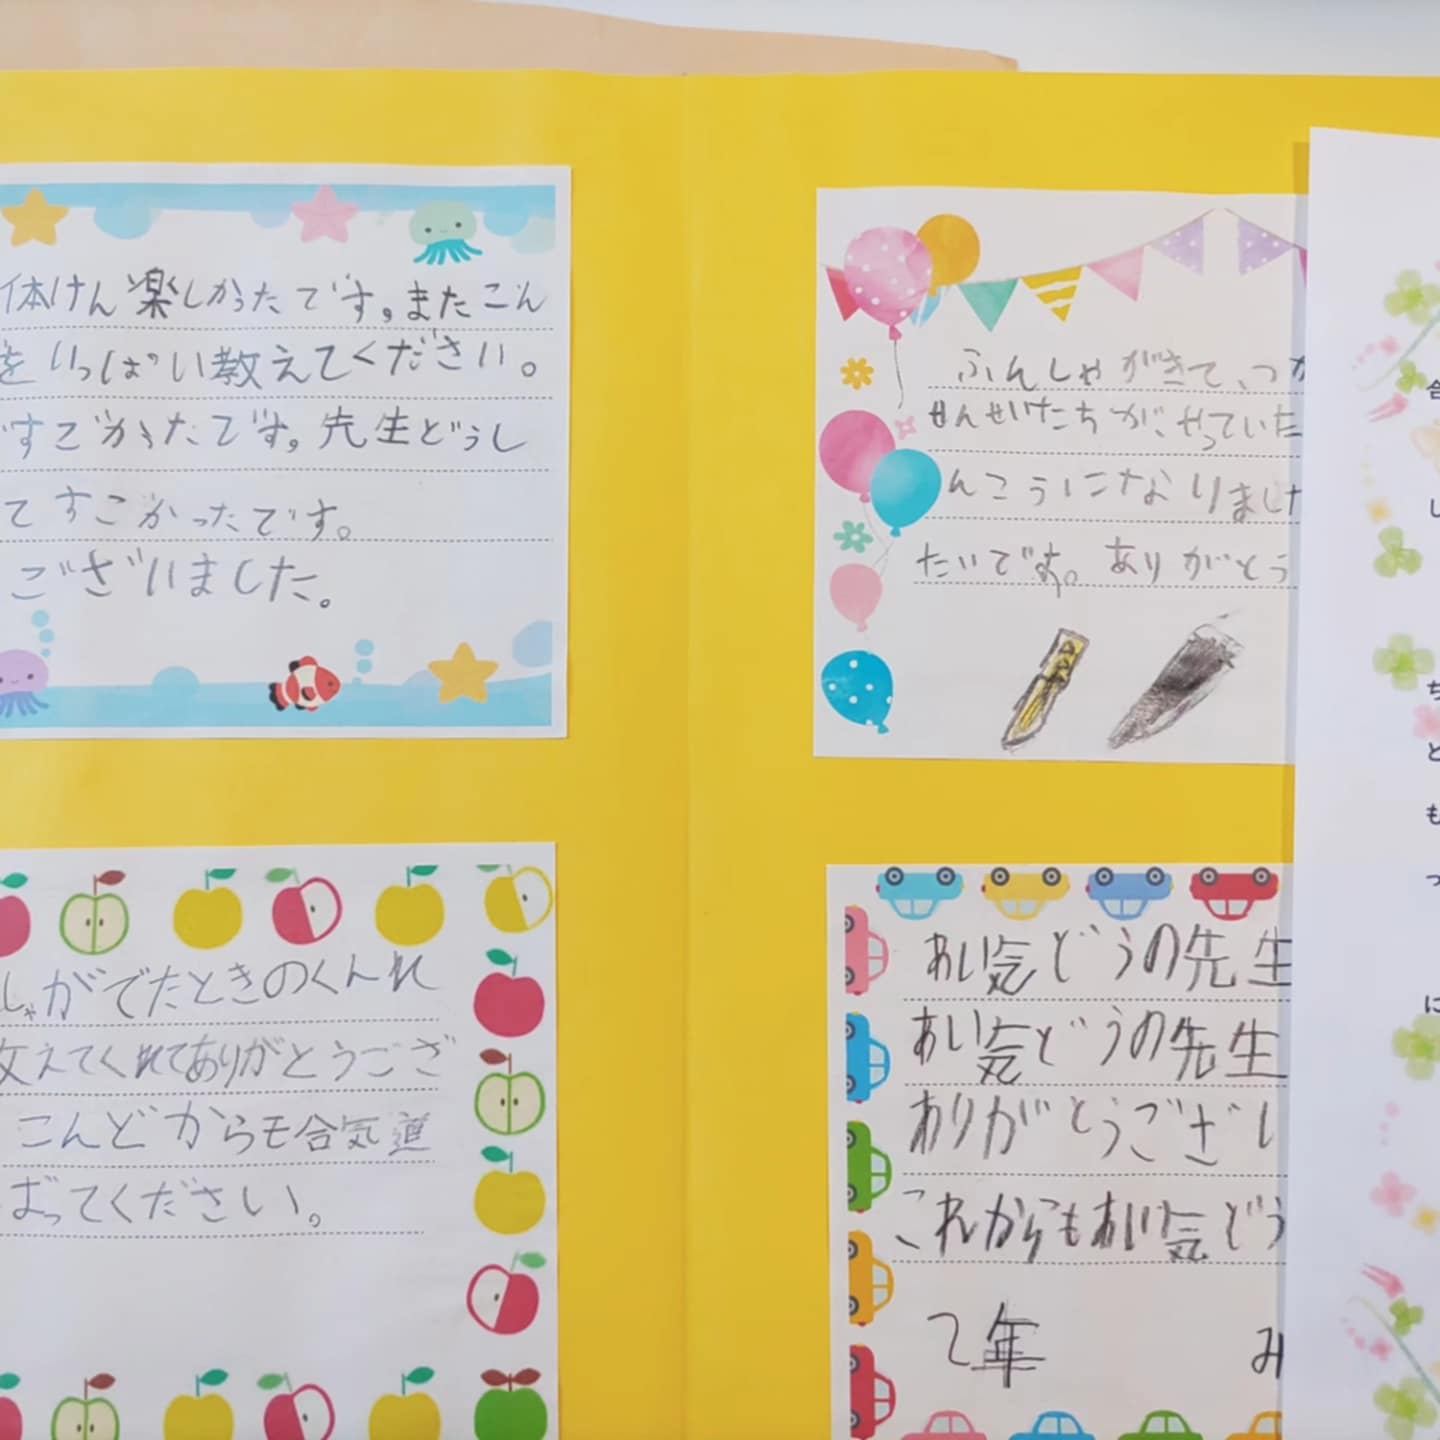 体けん楽しかったです。またこん
をいっぱい教えてください。
すごかったです。先生どうし
てすごかったです。
ございました。
ふんしゃがきて、つか
せんせいたちが、やっていた
んこうになりました
たいです。ありがとう
しゃがでたときのくんれ
教えてくれてありがとうござ
こんどからも合気道
ばってください。
あい気どうの先生
あい気どうの先生
ありがとうござい
これからもあい気どう
2年 み
し
ち
と
も
っ
に